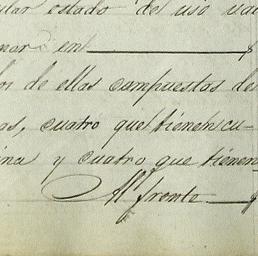 ular estado del uso va
mar en $
or de ellas compuestas de
as, cuatro que tienen cu-
ina y cuatro que tienen
Al frente $